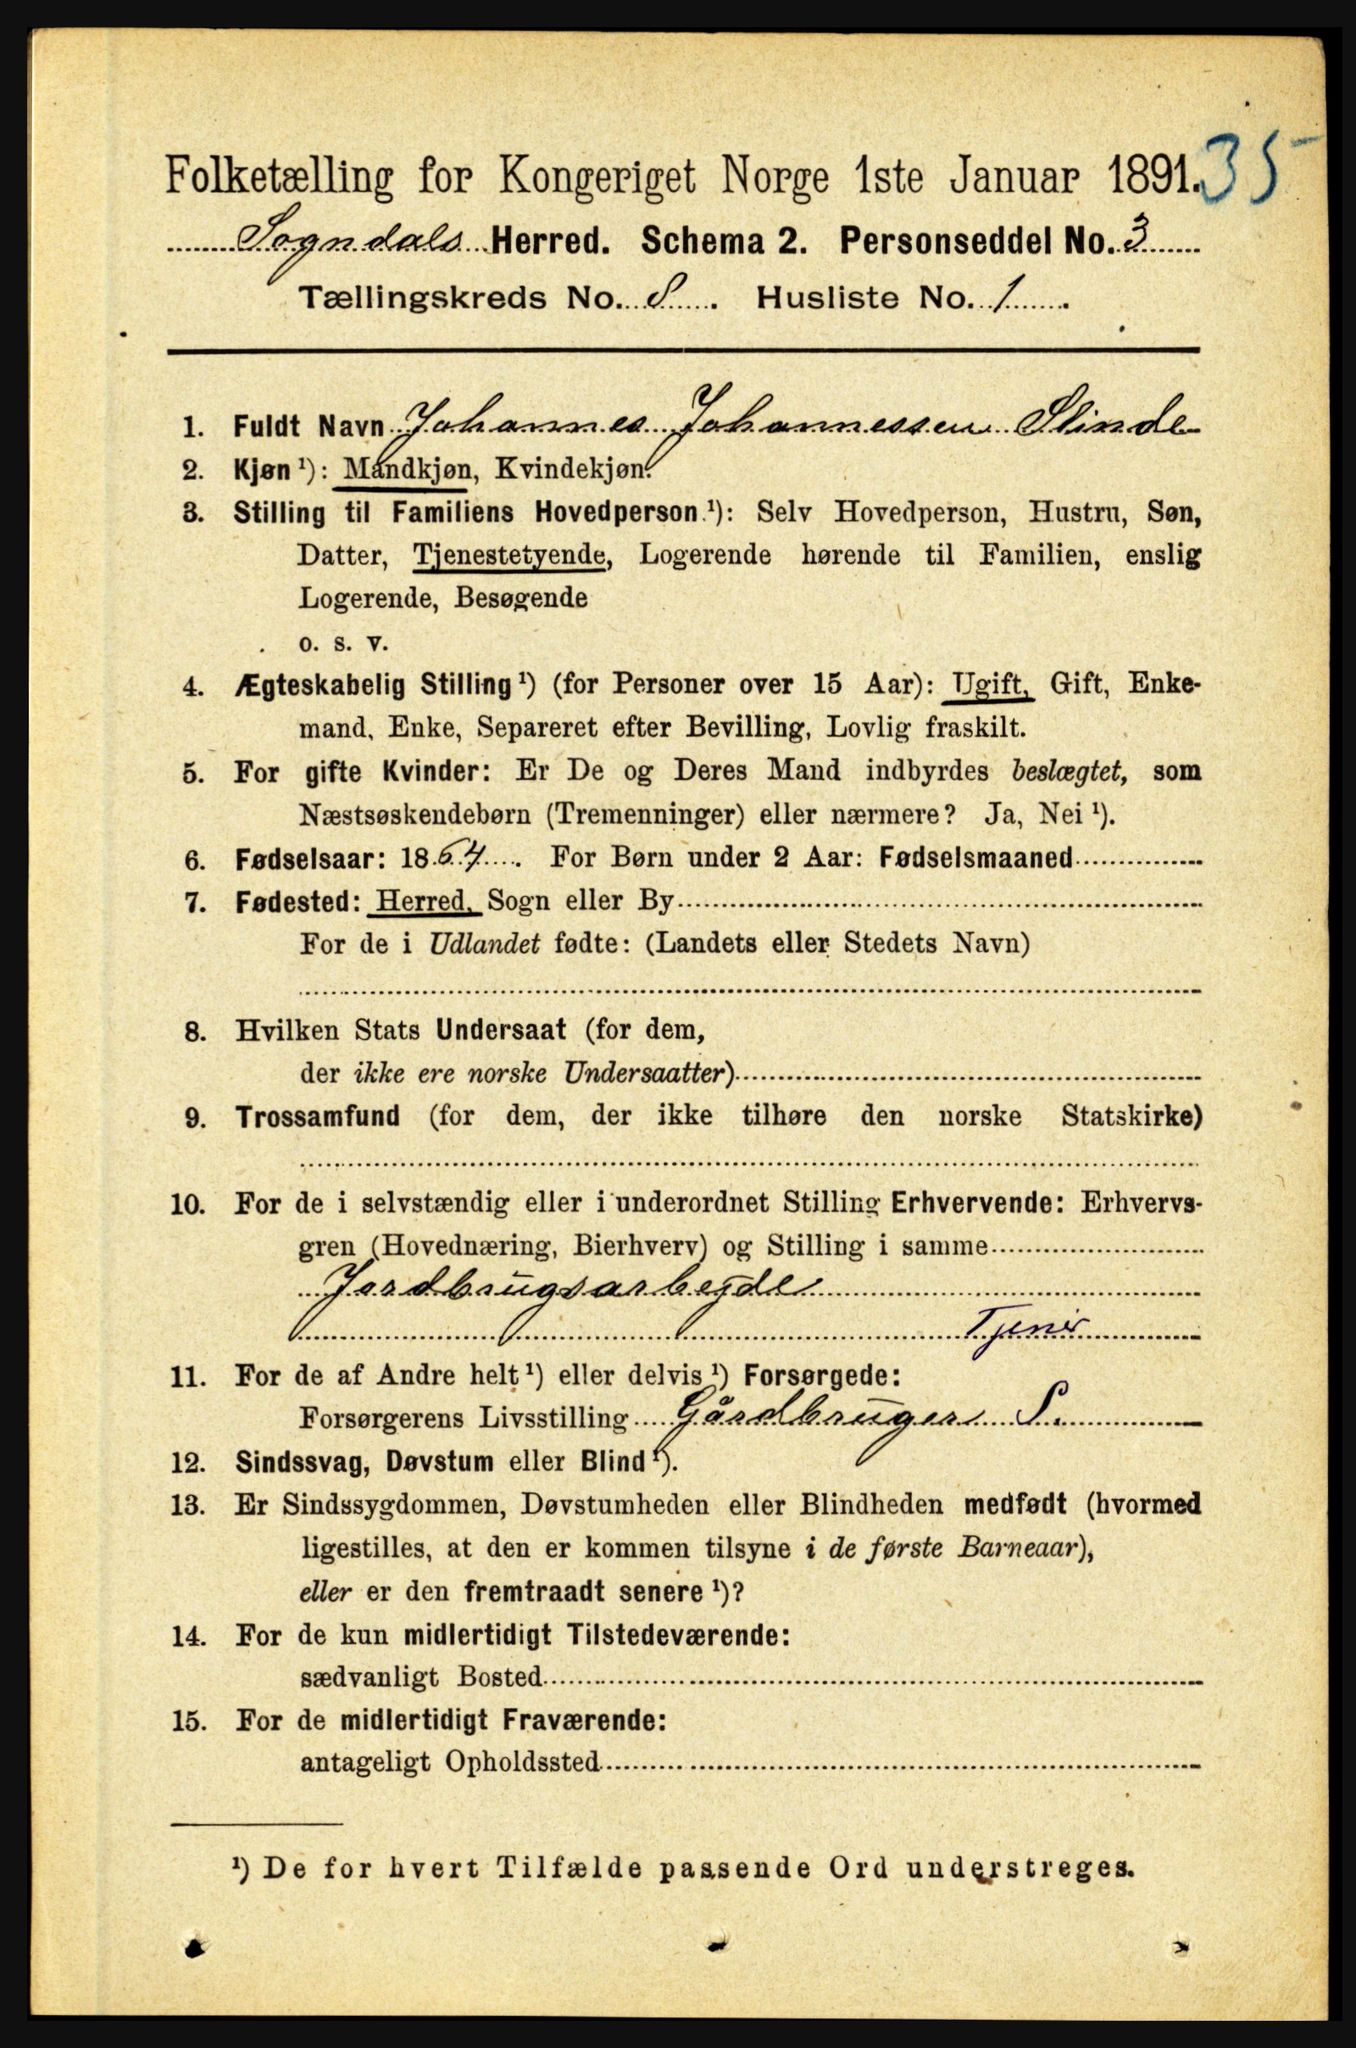 Folketælling for Kongeriget Norge 1ste Januar 1891. 35
Sogndals Herred. Schema 2. Personseddel No. 3
Tællingskreds No. 8. Husliste No. 1.
1. Fuldt Navn Johannes Johannessen Slinde
2. Kjøn ¹): Mandkjøn, Kvindekjøn.
3. Stilling til Familiens Hovedperson ¹): Selv Hovedperson, Hustru, Søn,
Datter, Tjenestetyende, Logerende hørende til Familien, enslig
Logerende, Besøgende
o. s. v.
4. Ægteskabelig Stilling ¹) (for Personer over 15 Aar): Ugift, Gift, Enke-
mand, Enke, Separeret efter Bevilling, Lovlig fraskilt.
5. For gifte Kvinder: Er De og Deres Mand indbyrdes beslægtet, som
Næstsøskendebørn (Tremenninger) eller nærmere? Ja, Nei ¹).
6. Fødselsaar: 1864. For Børn under 2 Aar: Fødselsmaaned
7. Fødested: Herred, Sogn eller By
For de i Udlandet fødte: (Landets eller Stedets Navn)
8. Hvilken Stats Undersaat (for dem,
der ikke ere norske Undersaatter)
9. Trossamfund (for dem, der ikke tilhøre den norske Statskirke)
10. For de i selvstændig eller i underordnet Stilling Erhvervende: Erhvervs-
gren (Hovednæring, Bierhverv) og Stilling i samme
Jordbrugsarbejde
Tjener
11. For de af Andre helt ¹) eller delvis ¹) Forsørgede:
Forsørgerens Livsstilling Gårdbruger S.
12. Sindssvag, Døvstum eller Blind ¹).
13. Er Sindssygdommen, Døvstumheden eller Blindheden medfødt (hvormed
ligestilles, at den er kommen tilsyne i de første Barneaar),
eller er den fremtraadt senere ¹)?
14. For de kun midlertidigt Tilstedeværende:
sædvanligt Bosted
15. For de midlertidigt Fraværende:
antageligt Opholdssted
¹) De for hvert Tilfælde passende Ord understreges.